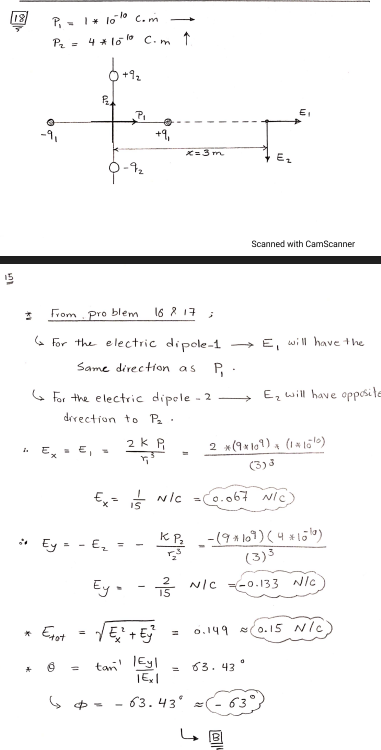 18
P₁ = 1 * 10⁻¹⁰ C.m →
P₂ = 4 * 10⁻¹⁰ C.m ↑
+q₂
P₂
P₁
E₁
-q₁
+q₁
x = 3 m
E₂
-q₂
Scanned with CamScanner
15
* From problem 16 & 17 ;
↳ For the electric dipole-1 → E₁ will have the
same direction as P₁.
↳ For the electric dipole-2 → E₂ will have opposite
direction to P₂.
∴ Eₓ = E₁ = 2 K P₁ / r₁³ = 2 *(9*10⁹) * (1*10⁻¹⁰) / (3)³
Eₓ = 1/15 N/C = 0.067 N/C
∴ Ey = - E₂ = - K P₂ / r₂³ = -(9*10⁹)(4*10⁻¹⁰) / (3)³
Ey = - 2/15 N/C = -0.133 N/C
* Etot = √Eₓ² + Ey² = 0.149 ≈ 0.15 N/C
* θ = tan⁻¹ |Ey| / |Eₓ| = 63.43°
↳ ϕ = - 63.43° ≈ - 63°
↳ B